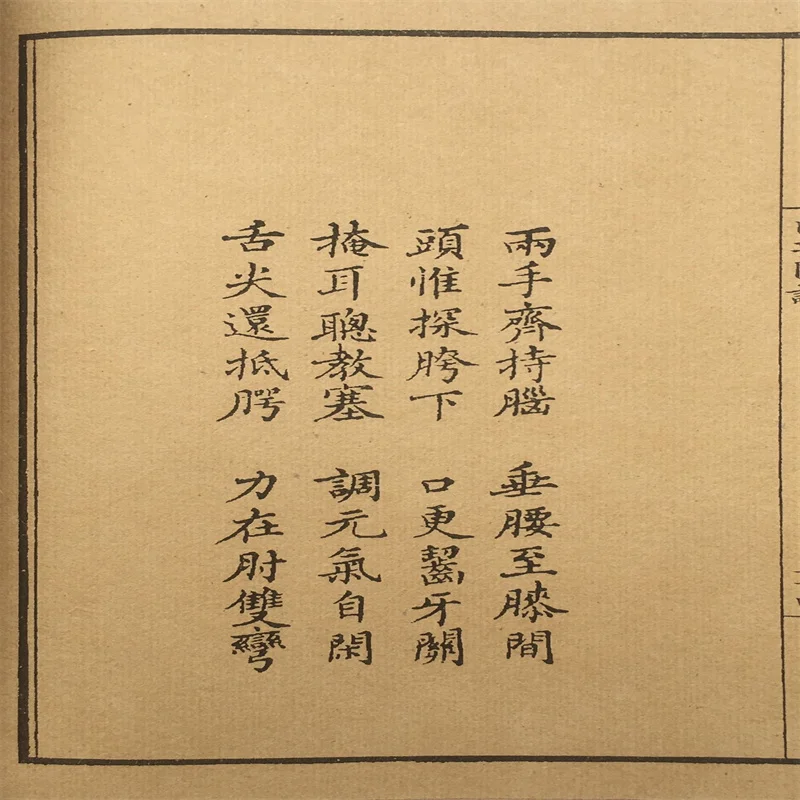 兩手齊持腦　垂腰至膝間
頭惟探胯下　口更齧牙關
掩耳聰教塞　調元氣自閑
舌尖還抵腭　力在肘雙彎